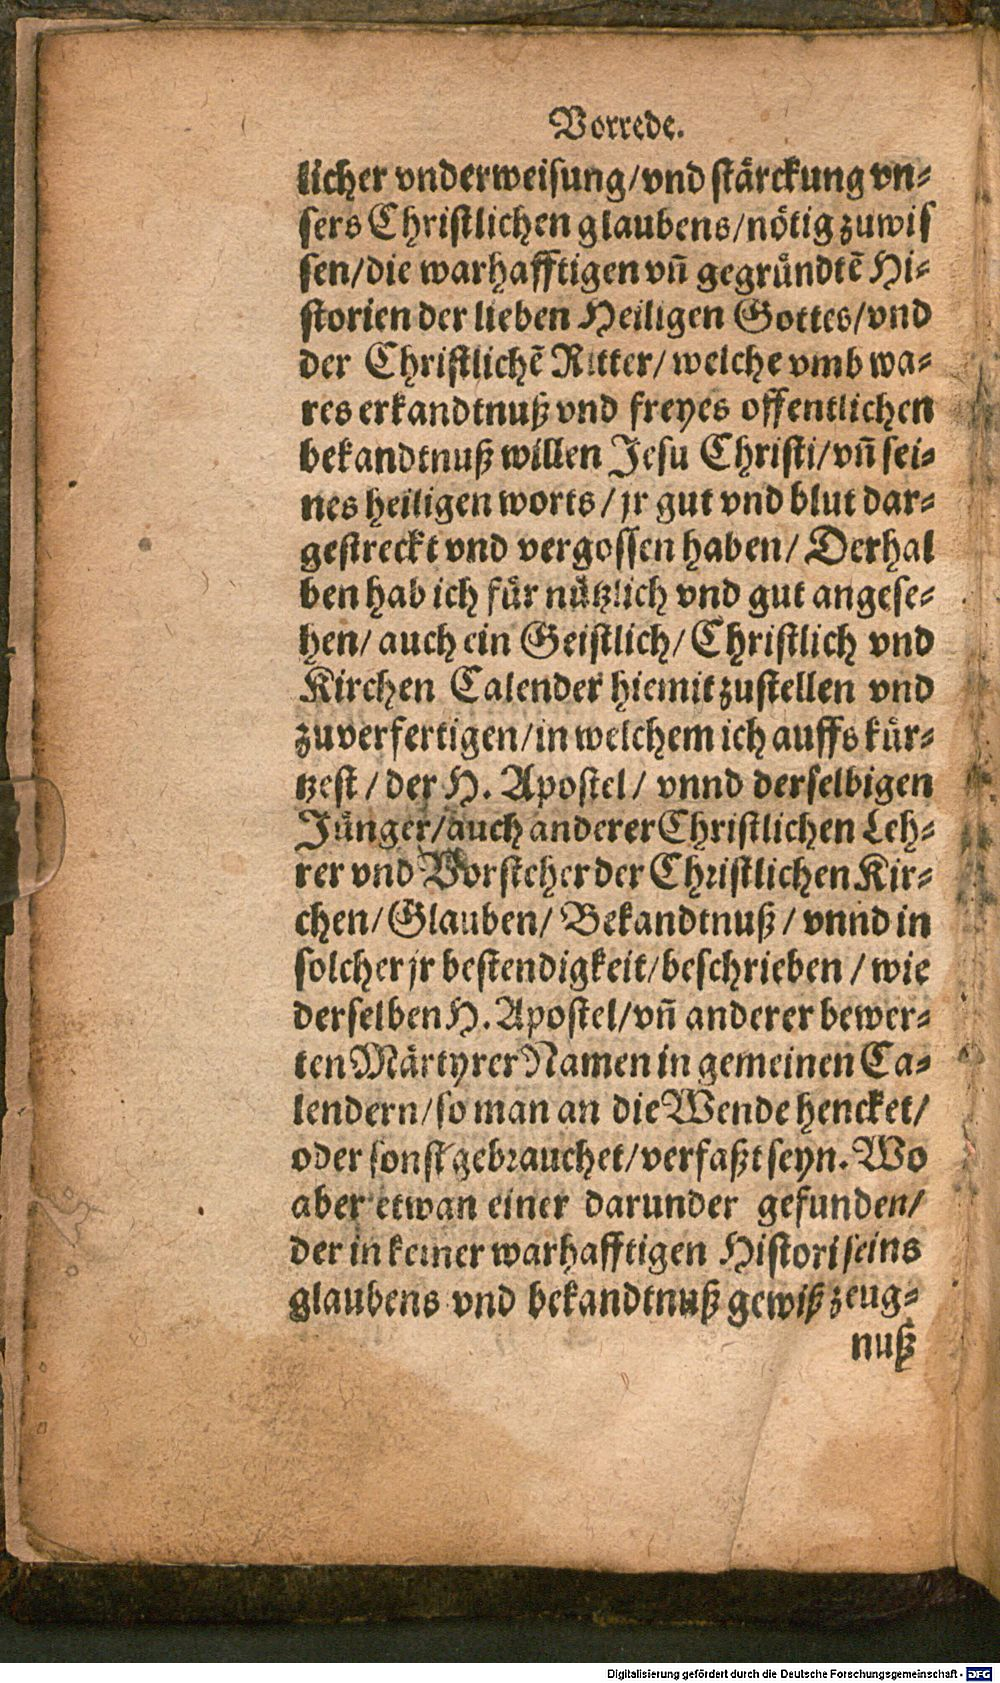 Vorrede.
licher vnderweisung/vnd stärckung vn⸗
sers Christlichen glaubens/nötig zuwis
sen/die warhafftigen vñ gegründtẽ Hi⸗
storien der lieben Heiligen Gottes/vnd
der Christlichẽ Ritter/welche vmb wa⸗
res erkandtnuß vnd freyes offentlichen
bekandtnuß willen Jesu Christi/vñ sei⸗
nes heiligen worts/jr gut vnd blut dar⸗
gestreckt vnd vergossen haben/Derhal
ben hab ich für nützlich vnd gut angese⸗
hen/auch ein Geistlich/Christlich vnd
Kirchen Calender hiemit zustellen vnd
zuverfertigen/in welchem ich auffs kür⸗
tzest/der H. Apostel/vnnd derselbigen
Jünger/auch anderer Christlichen Leh⸗
rer vnd Vorsteher der Christlichen Kir⸗
chen/Glauben/Bekandtnuß/vnnd in
solcher jr bestendigkeit/beschrieben/wie
derselben H. Apostel/vñ anderer bewer⸗
ten Märtyrer Namen in gemeinen Ca⸗
lendern/so man an die Wende hencket/
oder sonst gebrauchet/verfaßt seyn. Wo
aber etwan einer darunder gefunden/
der in keiner warhafftigen Histori seins
glaubens vnd bekandtnuß gewiß zeug⸗
nuß
Digitalisierung gefördert durch die Deutsche Forschungsgemeinschaft - DFG